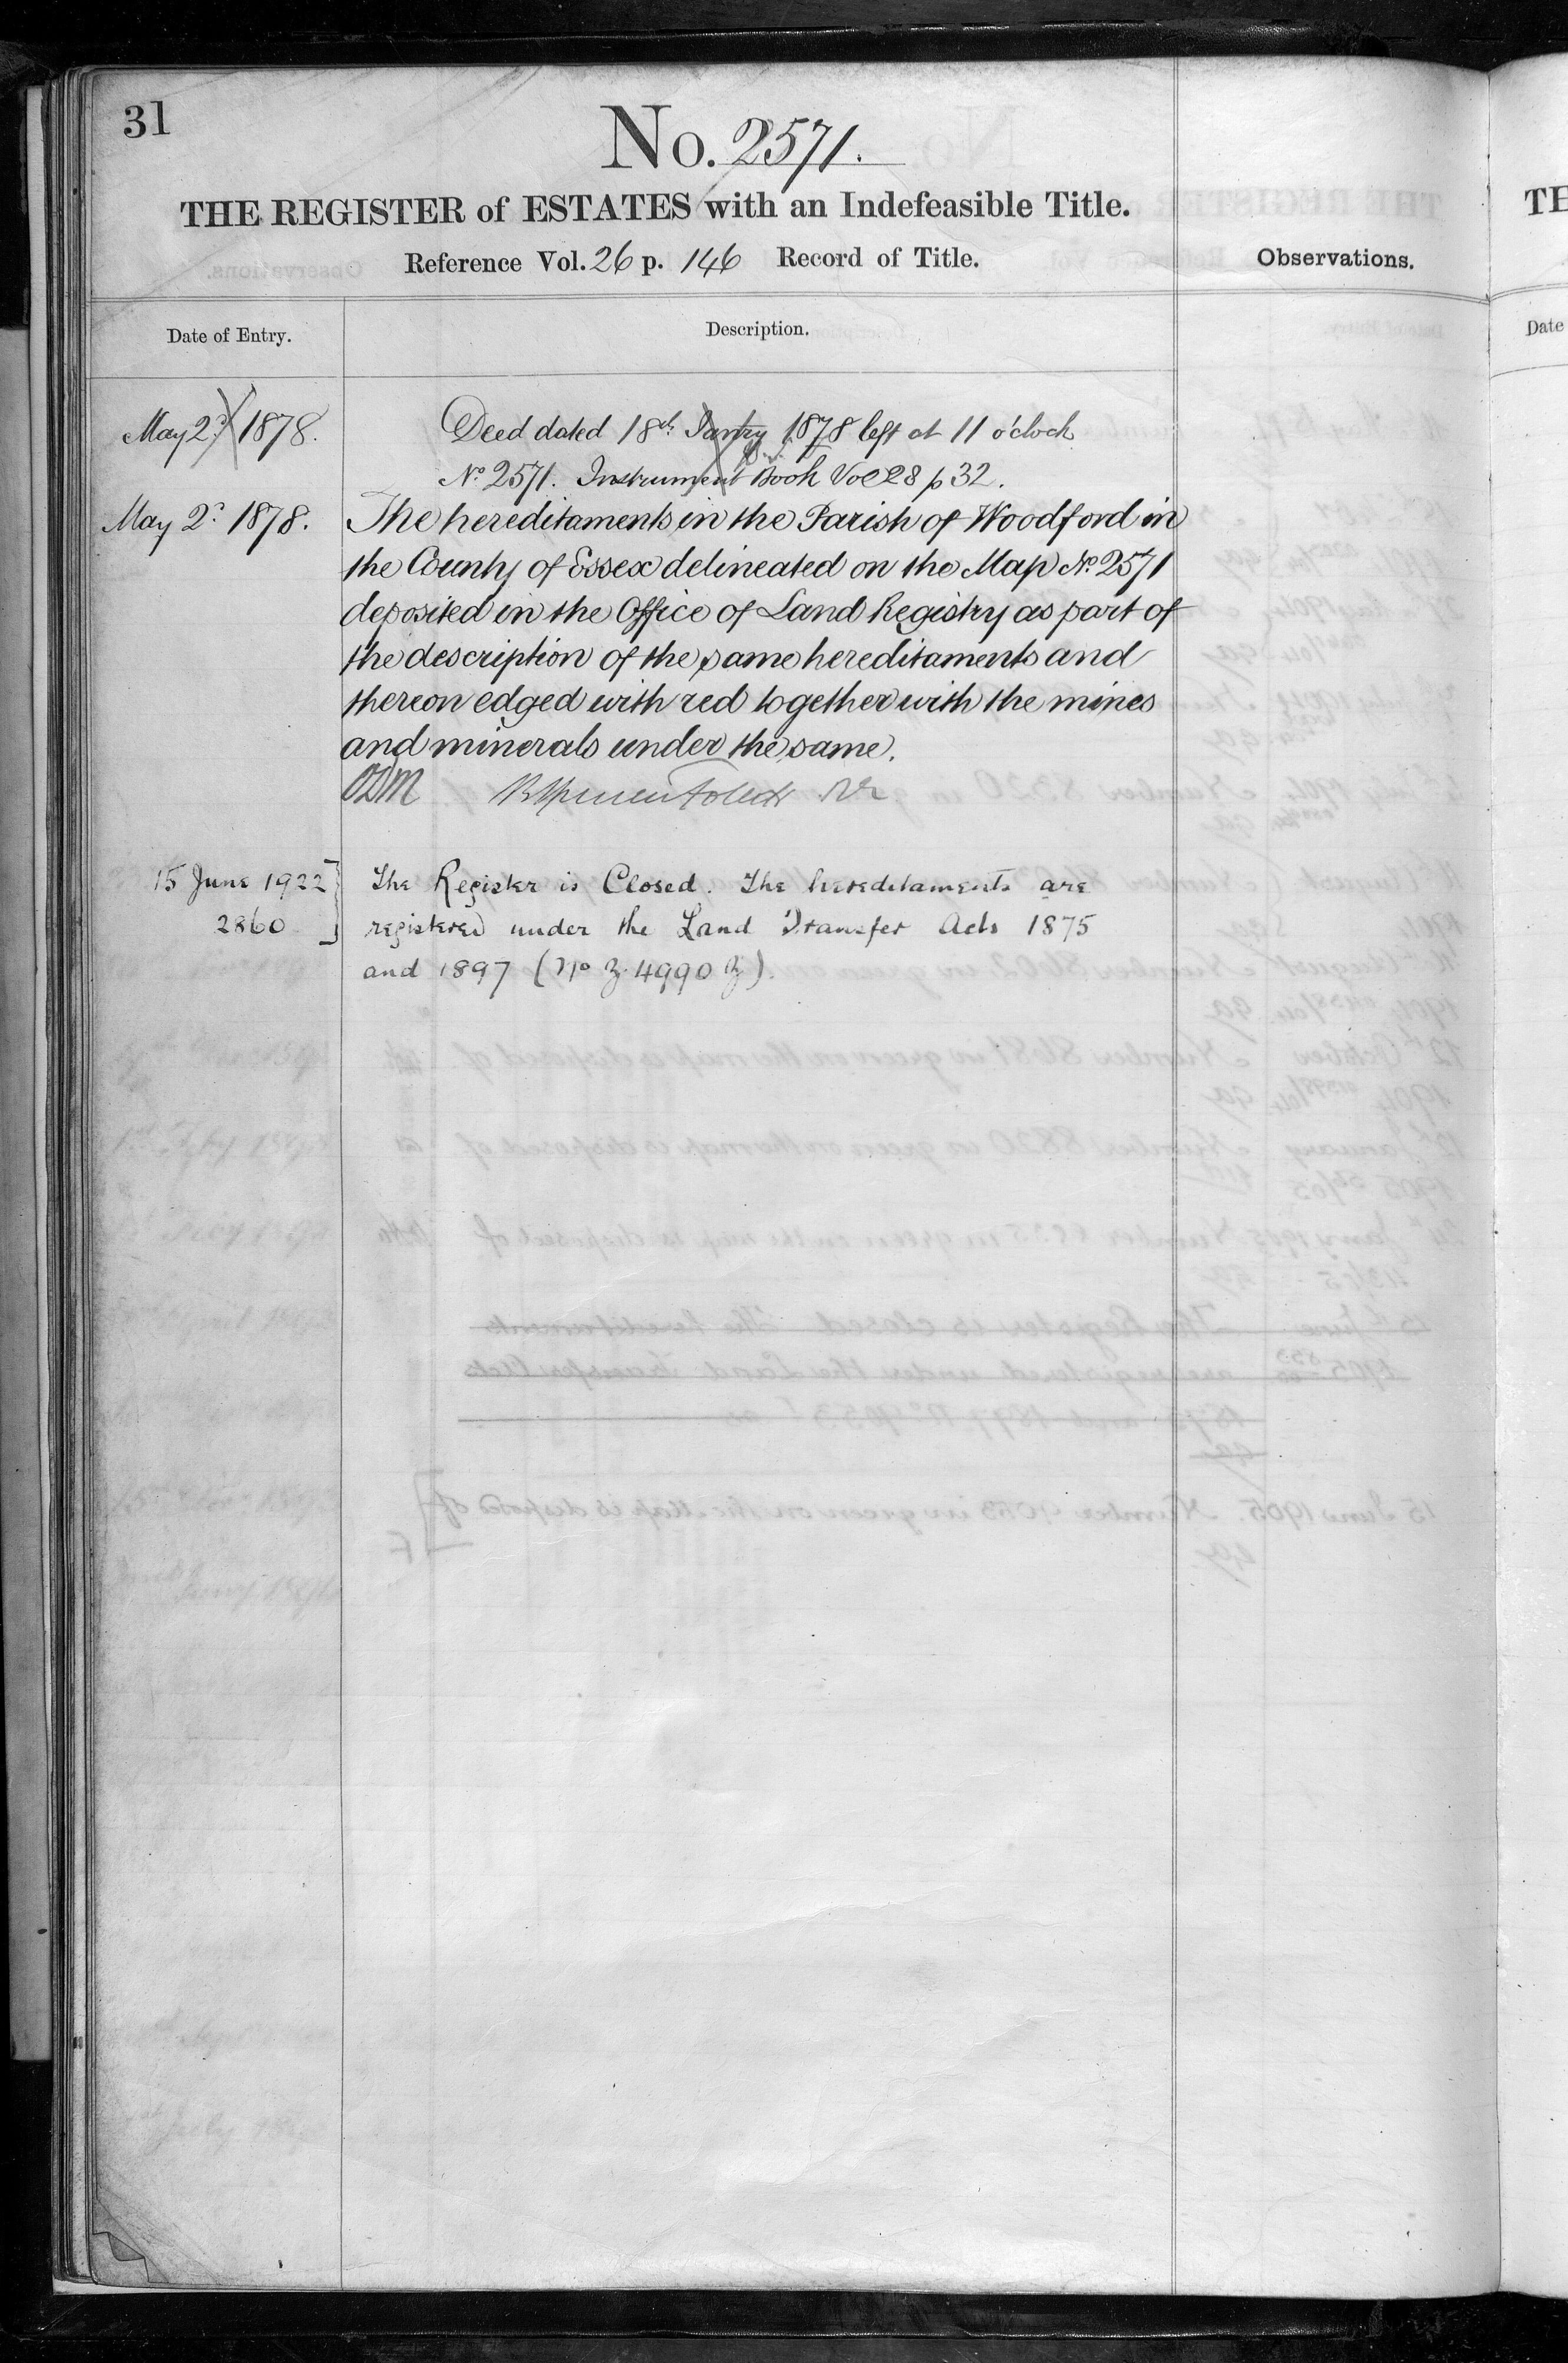 31
No. 2571.
THE REGISTER of ESTATES with an Indefeasible Title.
Reference Vol. 26 p. 146 Record of Title.
Observations.
Date of Entry.
Description.
May 2d 1878.
Deed dated 18th 1878 left at 11 o'clock
No 2571. Instrument Book Vol 28 p 32.
May 2d 1878.
The hereditaments in the Parish of Woodford in
the County of Essex delineated on the Map No 2571
deposited in the Office of Land Registry as part of
the description of the same hereditaments and
thereon edged with red together with the mines
and minerals under the same.
15 June 1922
2860
The Register is Closed. The hereditaments are
registered under the Land Transfer Acts 1875
and 1897 (No 4990).
TE
Date